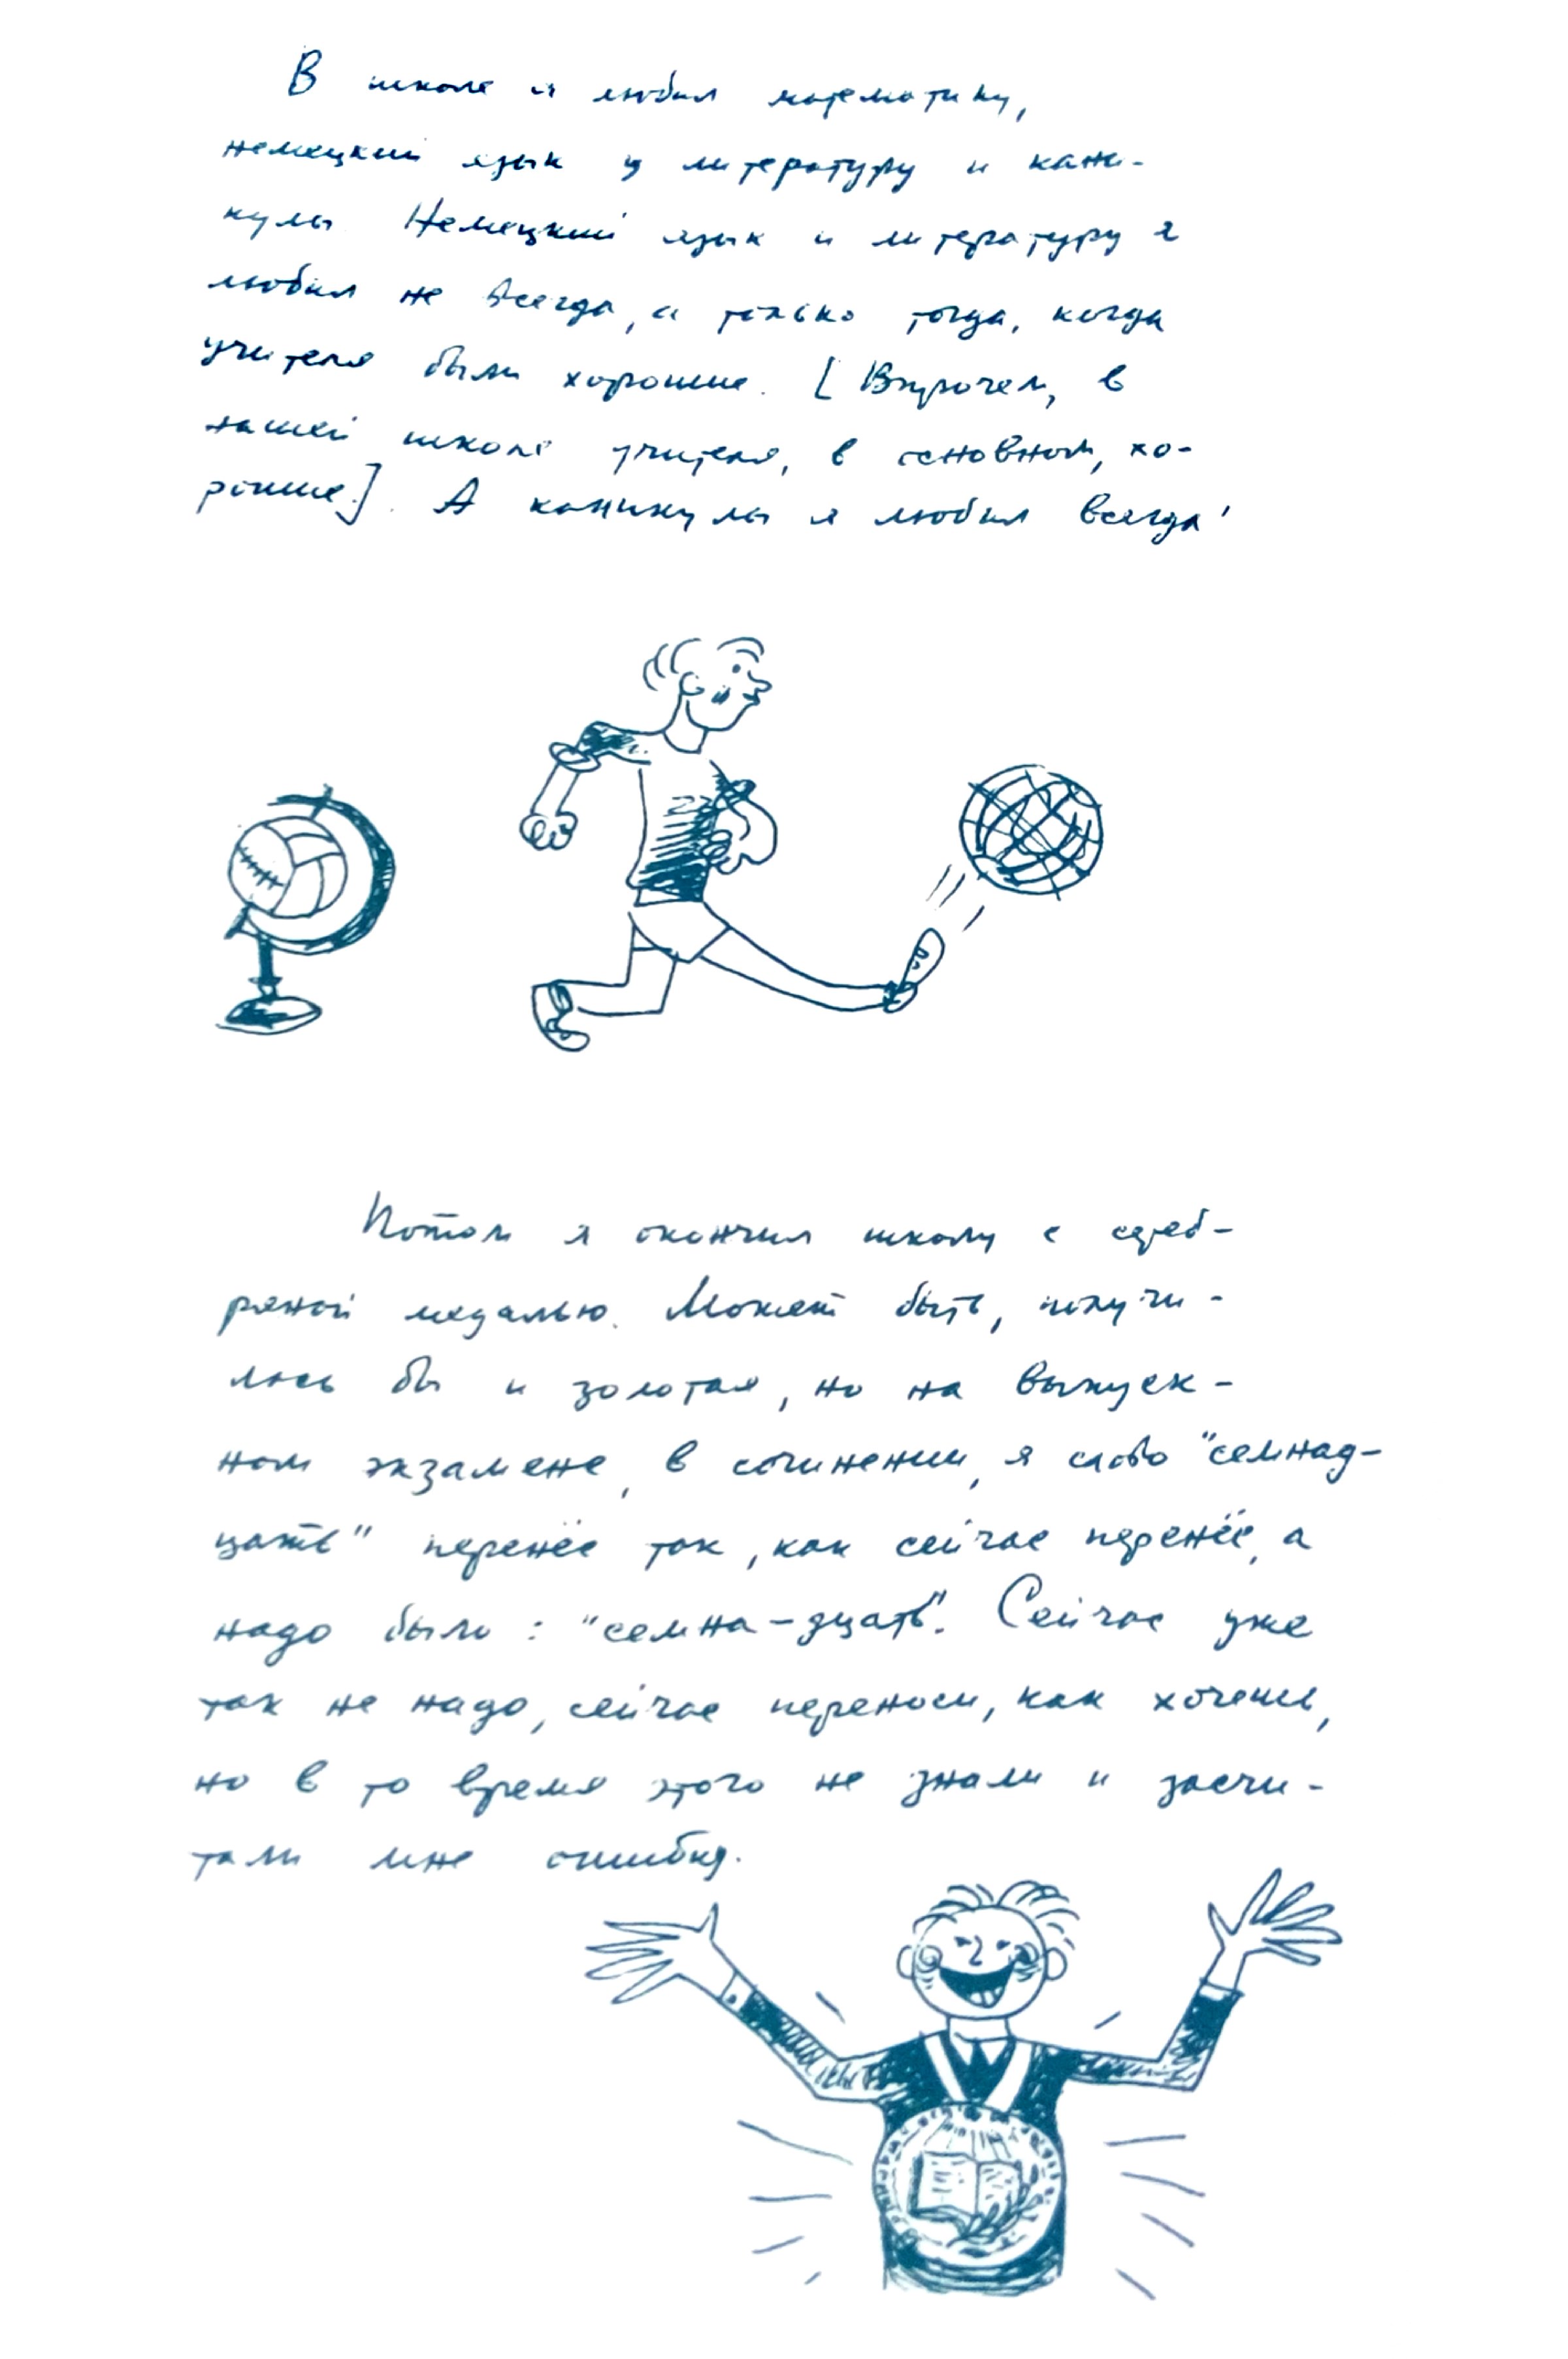 В школе я любил математику,
немецкий язык и литературу и кани-
кулы. Немецкий язык и литературу я
любил не всегда, а только тогда, когда
учителя были хорошие. [Впрочем, в
нашей школе учителя, в основном, хо-
рошие]. А каникулы я любил всегда!
Потом я окончил школу с сереб-
ряной медалью. Может быть, получи-
лась бы и золотая, но на выпуск-
ном экзамене, в сочинении, я слово "семнад-
цать" перенёс так, как сейчас перенёс, а
надо было: "семна-дцать". Сейчас уже
так не надо, сейчас переноси, как хочешь,
но в то время этого не знали и засчи-
тали мне ошибку.